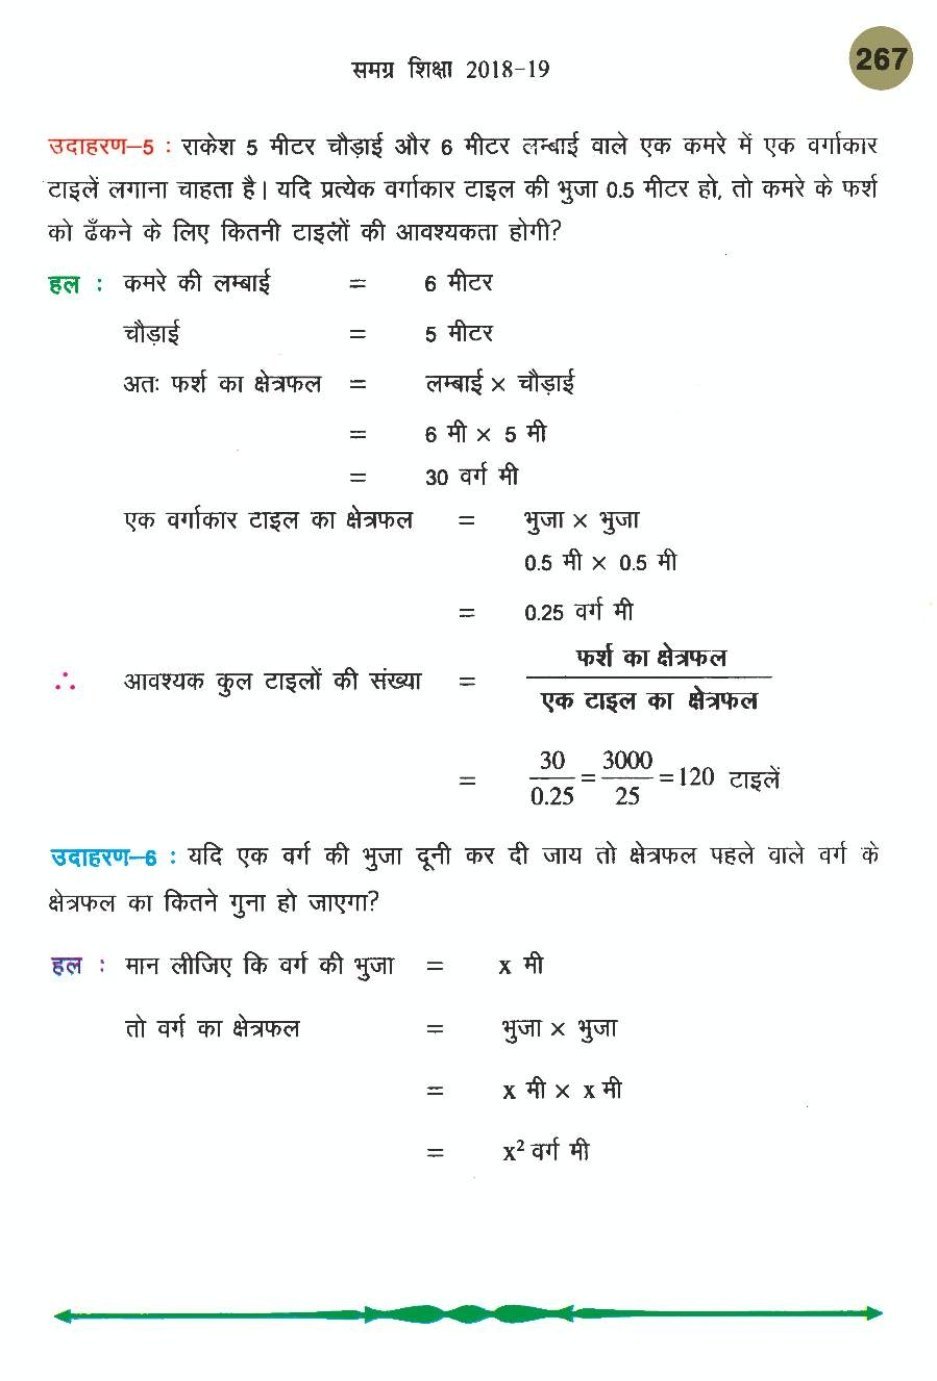 समग्र शिक्षा 2018-19
267
उदाहरण–5 : राकेश 5 मीटर चौड़ाई और 6 मीटर लम्बाई वाले एक कमरे में एक वर्गाकार
टाइलें लगाना चाहता है। यदि प्रत्येक वर्गाकार टाइल की भुजा 0.5 मीटर हो, तो कमरे के फर्श
को ढँकने के लिए कितनी टाइलों की आवश्यकता होगी?
हल : कमरे की लम्बाई = 6 मीटर
चौड़ाई = 5 मीटर
अतः फर्श का क्षेत्रफल = लम्बाई × चौड़ाई
= 6 मी × 5 मी
= 30 वर्ग मी
एक वर्गाकार टाइल का क्षेत्रफल = भुजा × भुजा
0.5 मी × 0.5 मी
= 0.25 वर्ग मी
फर्श का क्षेत्रफल
∴ आवश्यक कुल टाइलों की संख्या =
एक टाइल का क्षेत्रफल
= 30/0.25 = 3000/25 = 120 टाइलें
उदाहरण–6 : यदि एक वर्ग की भुजा दूनी कर दी जाय तो क्षेत्रफल पहले वाले वर्ग के
क्षेत्रफल का कितने गुना हो जाएगा?
हल : मान लीजिए कि वर्ग की भुजा = x मी
तो वर्ग का क्षेत्रफल = भुजा × भुजा
= x मी × x मी
= x² वर्ग मी